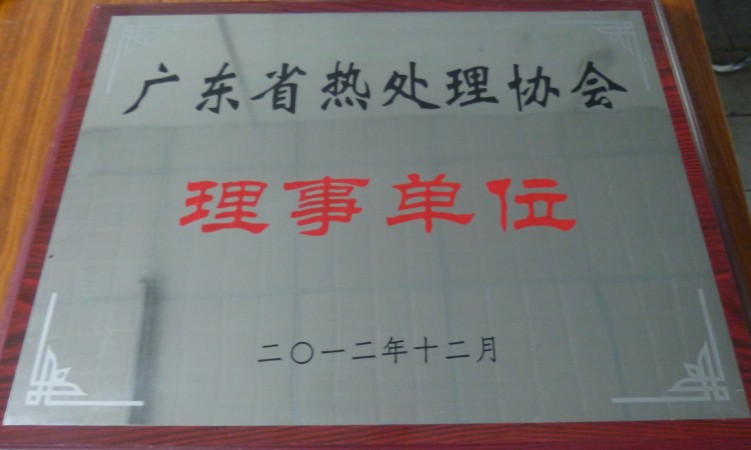 广东省热处理协会
理事单位
二〇一二年十二月